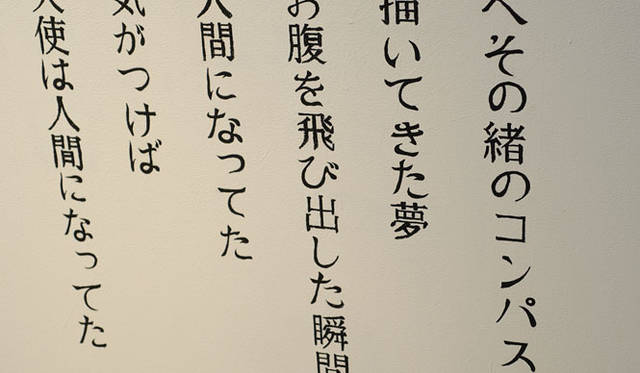 へその緒のコンパス
描いてきた夢
お腹を飛び出した瞬間
人間になってた
気がつけば
天使は人間になってた